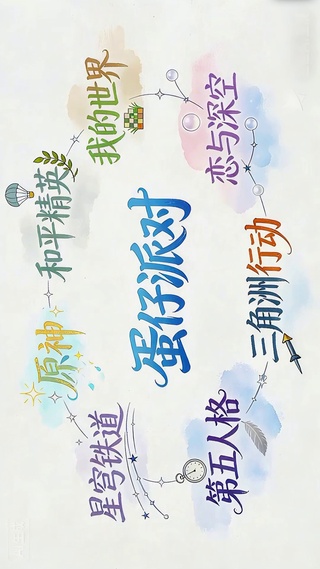 我的世界
恋与深空
和平精英
蛋仔派对
三角洲行动
原神
星穹铁道
第五人格